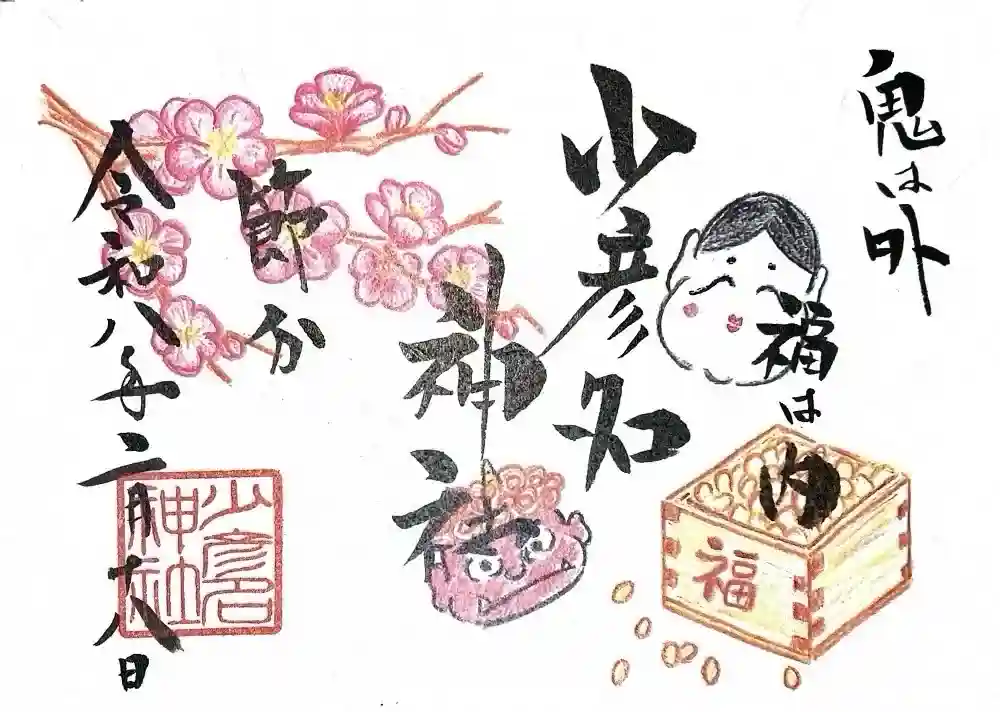 鬼は外
福は内
福
少彦名
神社
節分
令和八年二月十八日
少彦名
神社